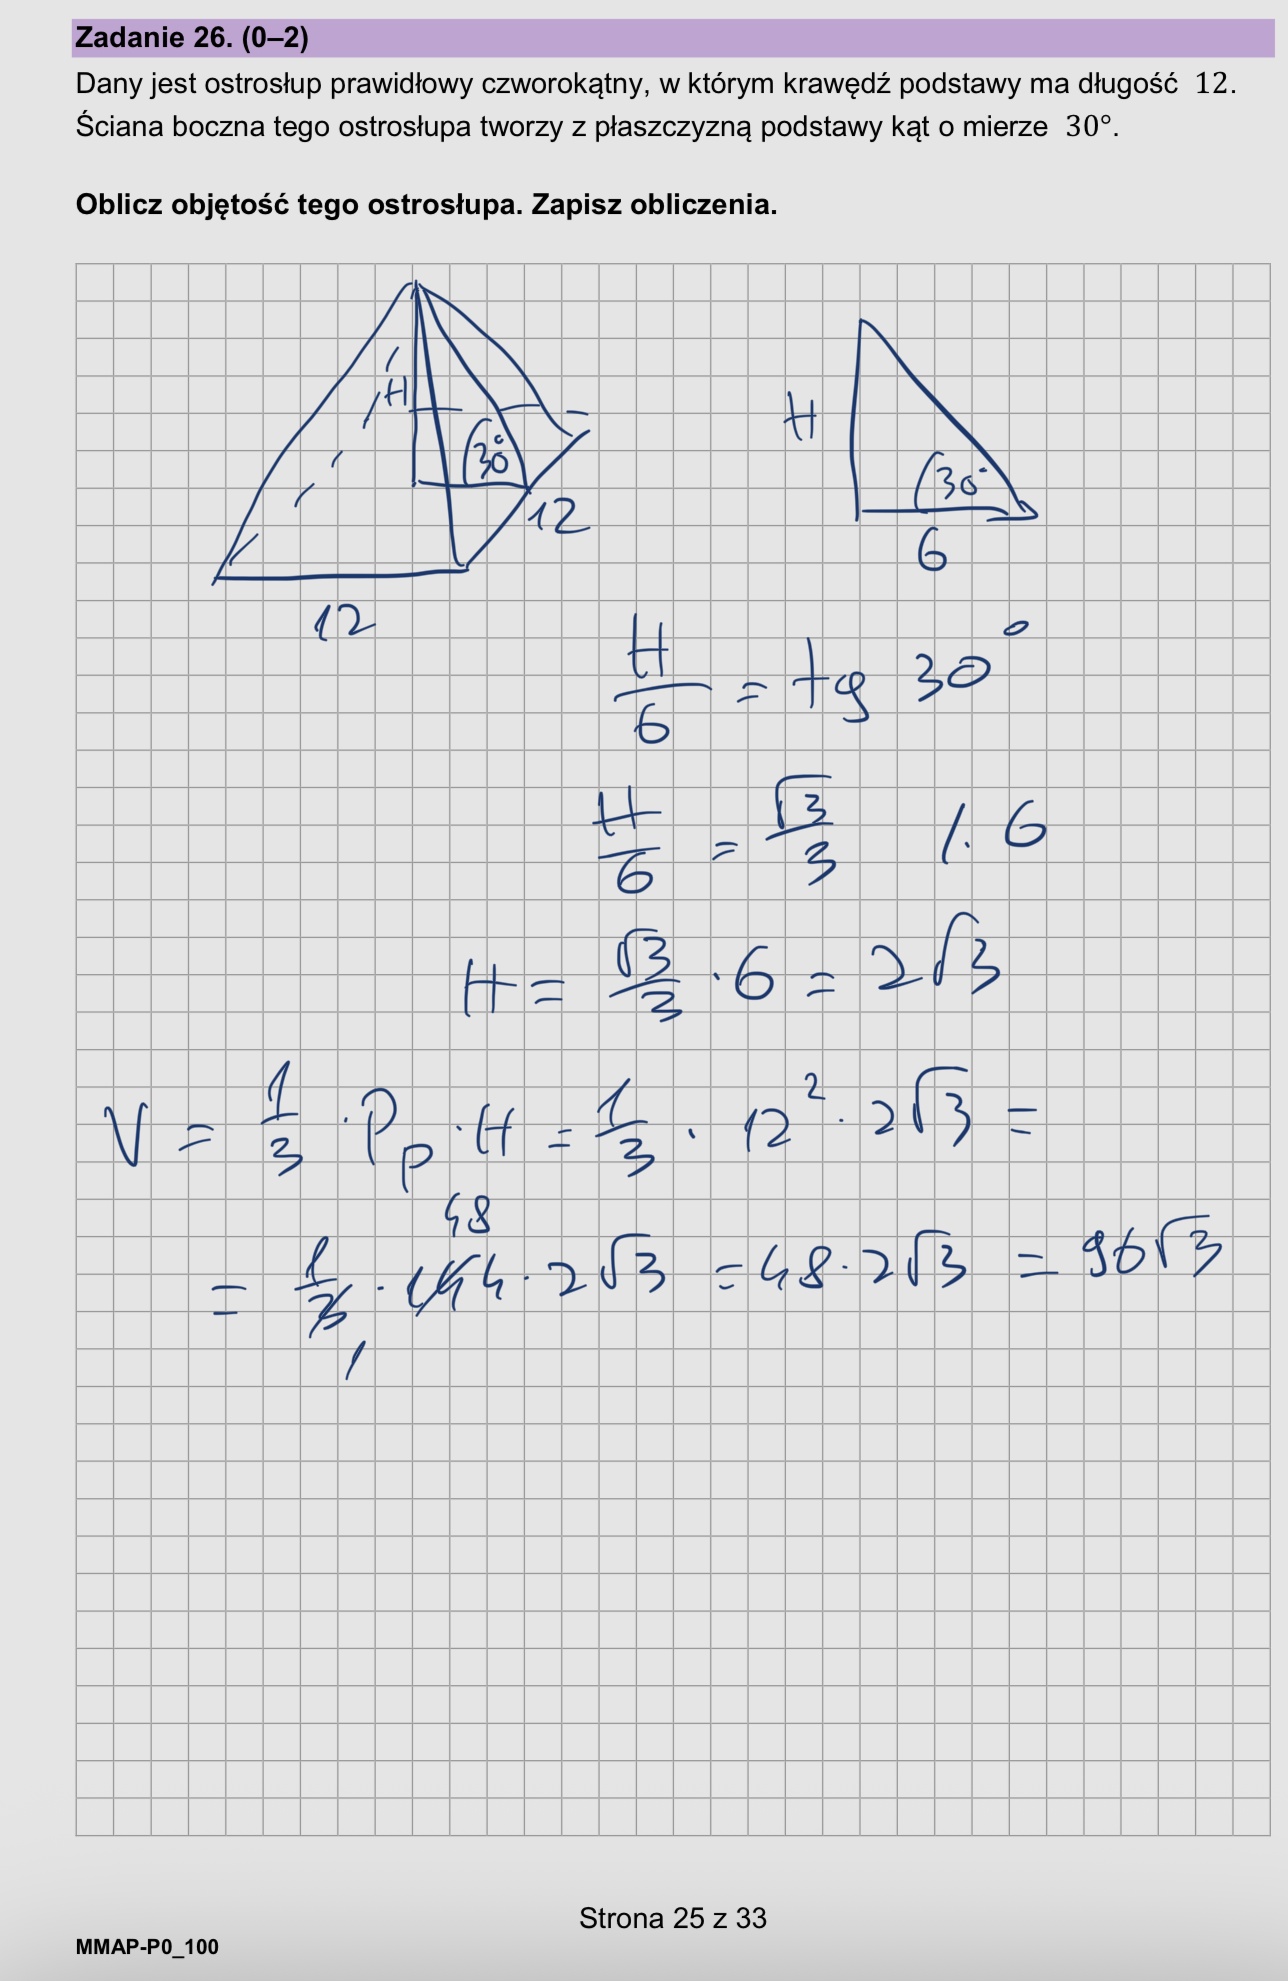 Zadanie 26. (0–2)
Dany jest ostrosłup prawidłowy czworokątny, w którym krawędź podstawy ma długość 12.
Ściana boczna tego ostrosłupa tworzy z płaszczyzną podstawy kąt o mierze 30°.
Oblicz objętość tego ostrosłupa. Zapisz obliczenia.
H
30°
12
12
H
30°
6
H/6 = tg 30°
H/6 = √3/3 /·6
H = √3/3 · 6 = 2√3
V = 1/3 · Pp · H = 1/3 · 12² · 2√3 =
48
= 1/3 · 144 · 2√3 = 48 · 2√3 = 96√3
1
Strona 25 z 33
MMAP-P0_100